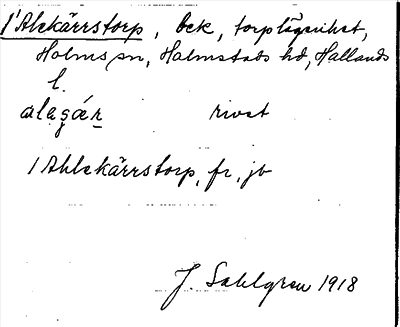 1'Alekärrstorp, bek, torplägenhet,
Holms sn, Halmstads hd, Hallands
l.
alaʂǽr rivet
1 Ahlekärrstorp, fr, jb
J. Sahlgren 1918